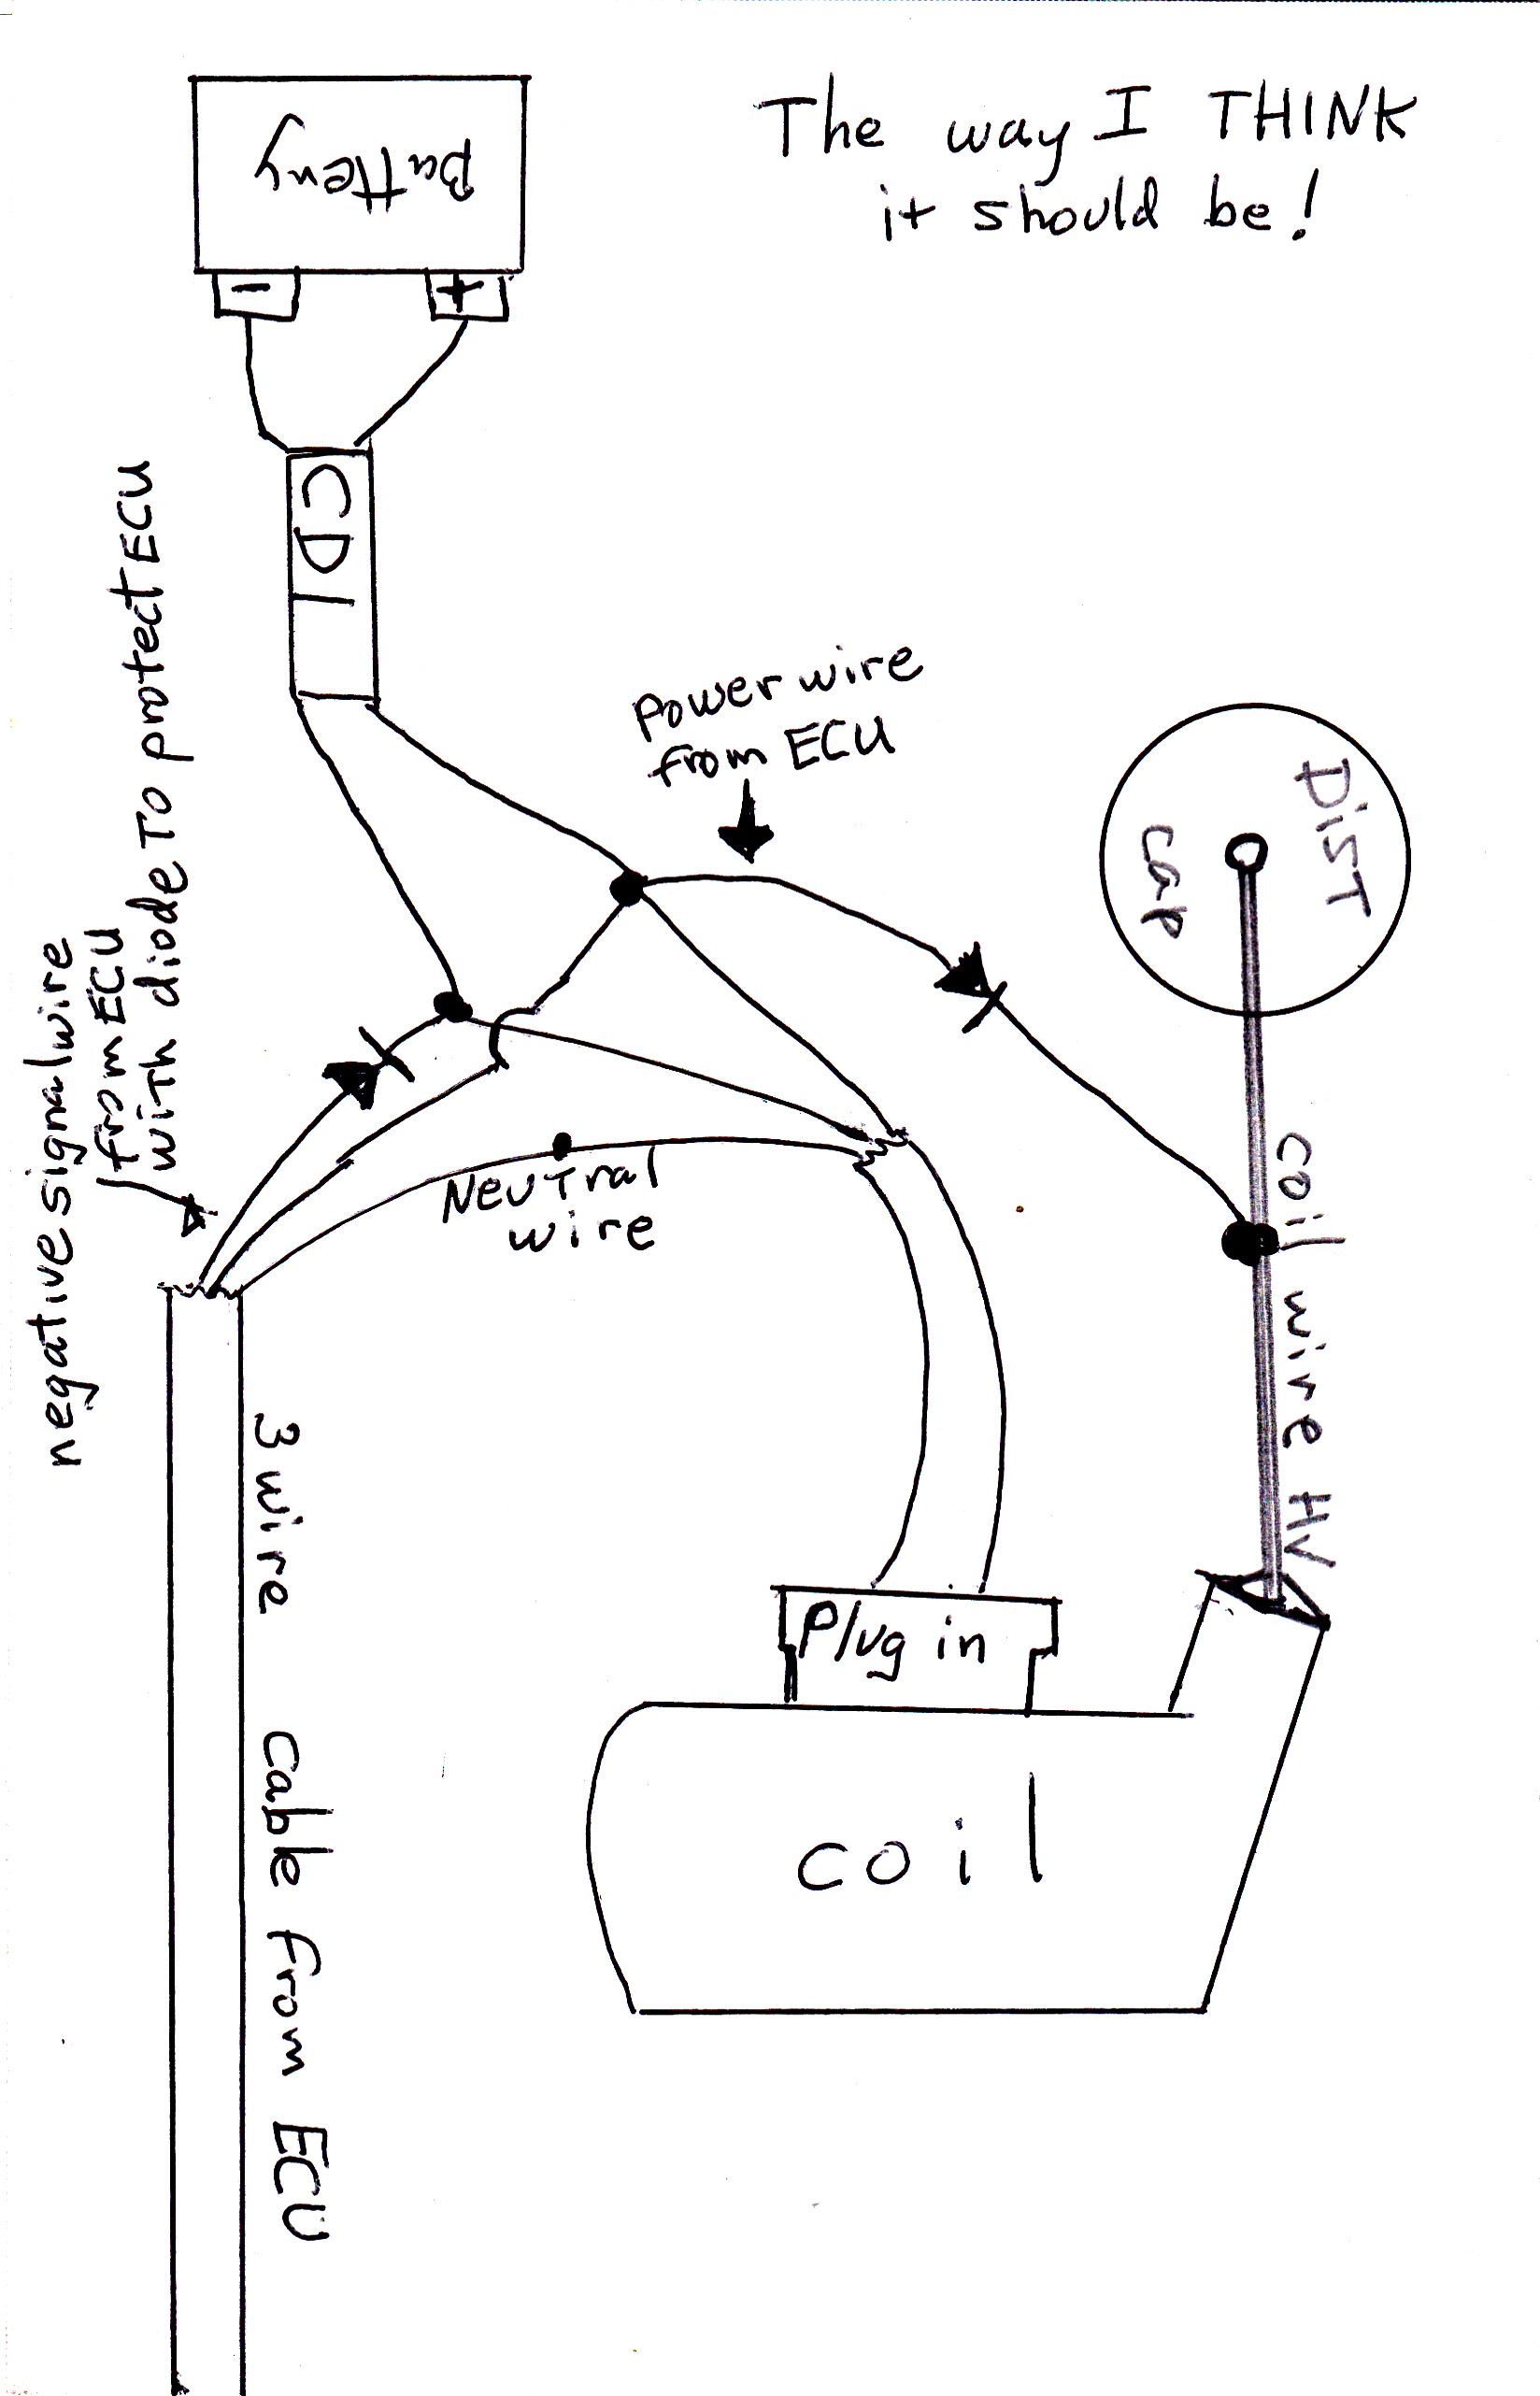 The way I THINK
it should be!
Battery
-
+
CDI
Power wire
from ECU
DIST
cap
negative signal wire
from ECU
with diode To protect ECU
Neutral
wire
coil wire HV
3 wire cable from ECU
Plug in
coil